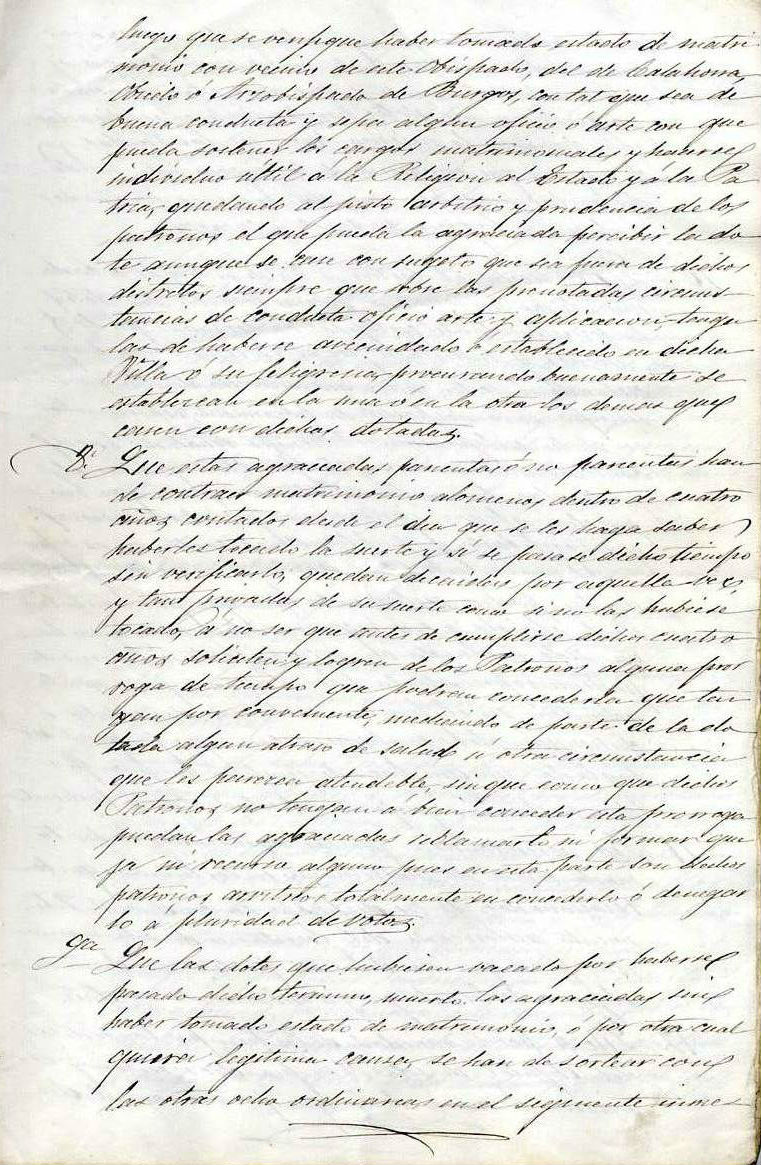 luego que se verifique haber tomado estado de matri-
monio con vecino de este Obispado, del de Calahorra,
Obiedo ó Arzobispado de Burgos, con tal que sea de
buena conducta y sepa algun oficio ó arte con que
pueda sostener las cargas matrimoniales y hacerse
individuo util á la Religion al Estado y á la Pa
tria, quedando al justo arbitrio y prudencia de los
patronos el que pueda la agraciada percibir la do
te aunque se case con sugeto que sea fuera de dichos
distritos siempre que sobre las prenotadas circuns-
tancias de conducta oficio arte y aplicacion, tenga
las de haberse avecindado o establecido en dicha
Villa o su feligresia, procurando buenamente se
establezcan en la una ó en la otra los demas que
casen con dichas dotadas.
8ª Que estas agraciadas parientas ó no parientas han
de contraer matrimonio alomenos dentro de cuatro
años contados desde el dia que se les haga saber
haberles tocado la suerte y si se pasase dicho tiempo
sin verificarlo, quedan decaidas por aquella vez,
y tan privadas de su suerte como si no las hubiese
tocado, a no ser que antes de cumplirse dichos cuatro
años soliciten y logren de los Patronos alguna pror
roga de tiempo que podran concederla que ten
gan por conveniente, mediando de parte de la do
tada algun atraso de salud ú otra circunstancia
que les parezca atendible, sin que como que dichos
Patronos no tengan á bien conceder esta prorroga
puedan las agraciadas reclamarlo ni formar que
ja ni recurso alguno pues en esta parte son dichos
patronos arvitros totalmente en concederlo ó denegar
lo á pluridad de votos.
9ª Que las dotes que hubiesen vacado por haberse
pasado dicho termino, muerto las agraciadas sin
haber tomado estado de matrimonio, ó por otra cual
quiera legitima causa, se han de sortear con
las otras ocho ordinarias en el siguiente inme-